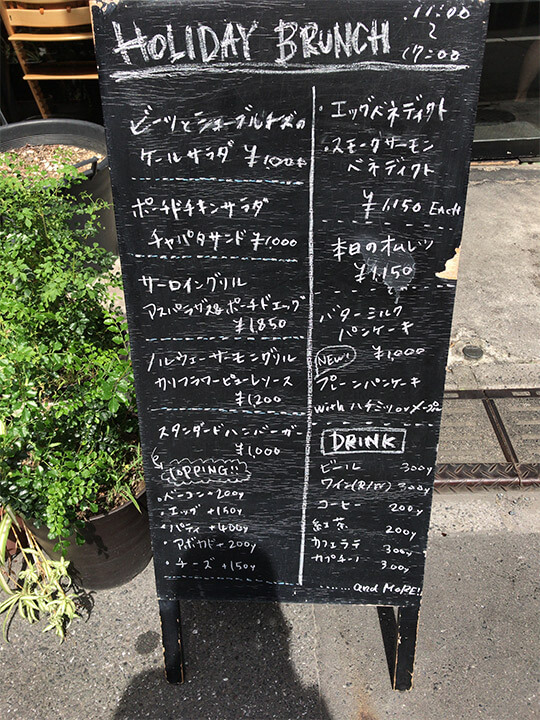 HOLIDAY BRUNCH
11:00
~
17:00
ビーツとシェーブルチーズの
ケールサラダ ¥1000
ポーチドチキンサラダ
チャパタサンド ¥1000
サーロイングリル
アスパラガス&ポーチドエッグ
¥1850
ノルウェーサーモングリル
カリフラワーピューレソース
¥1200
スタンダードハンバーガー
¥1,000
TOPPING!!
・ベーコン+200y
・エッグ +150y
・パティ +400y
・アボカド+200y
・チーズ +150y
・エッグベネディクト
・スモークサーモン
ベネディクト
¥1,150 Each
本日のオムレツ
¥1,150
バターミルク
パンケーキ
NEW! ¥1,000
プレーンパンケーキ
with ハチミツ orメープル
DRINK
ビール 300y
ワイン(R/W) 300y
コーヒー 200y
紅茶 200y
カフェラテ 300y
カプチーノ 300y
......and MORE!!